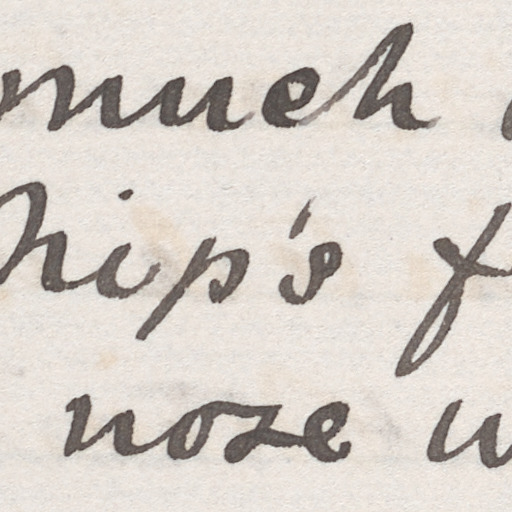 much
hip's f
nose w